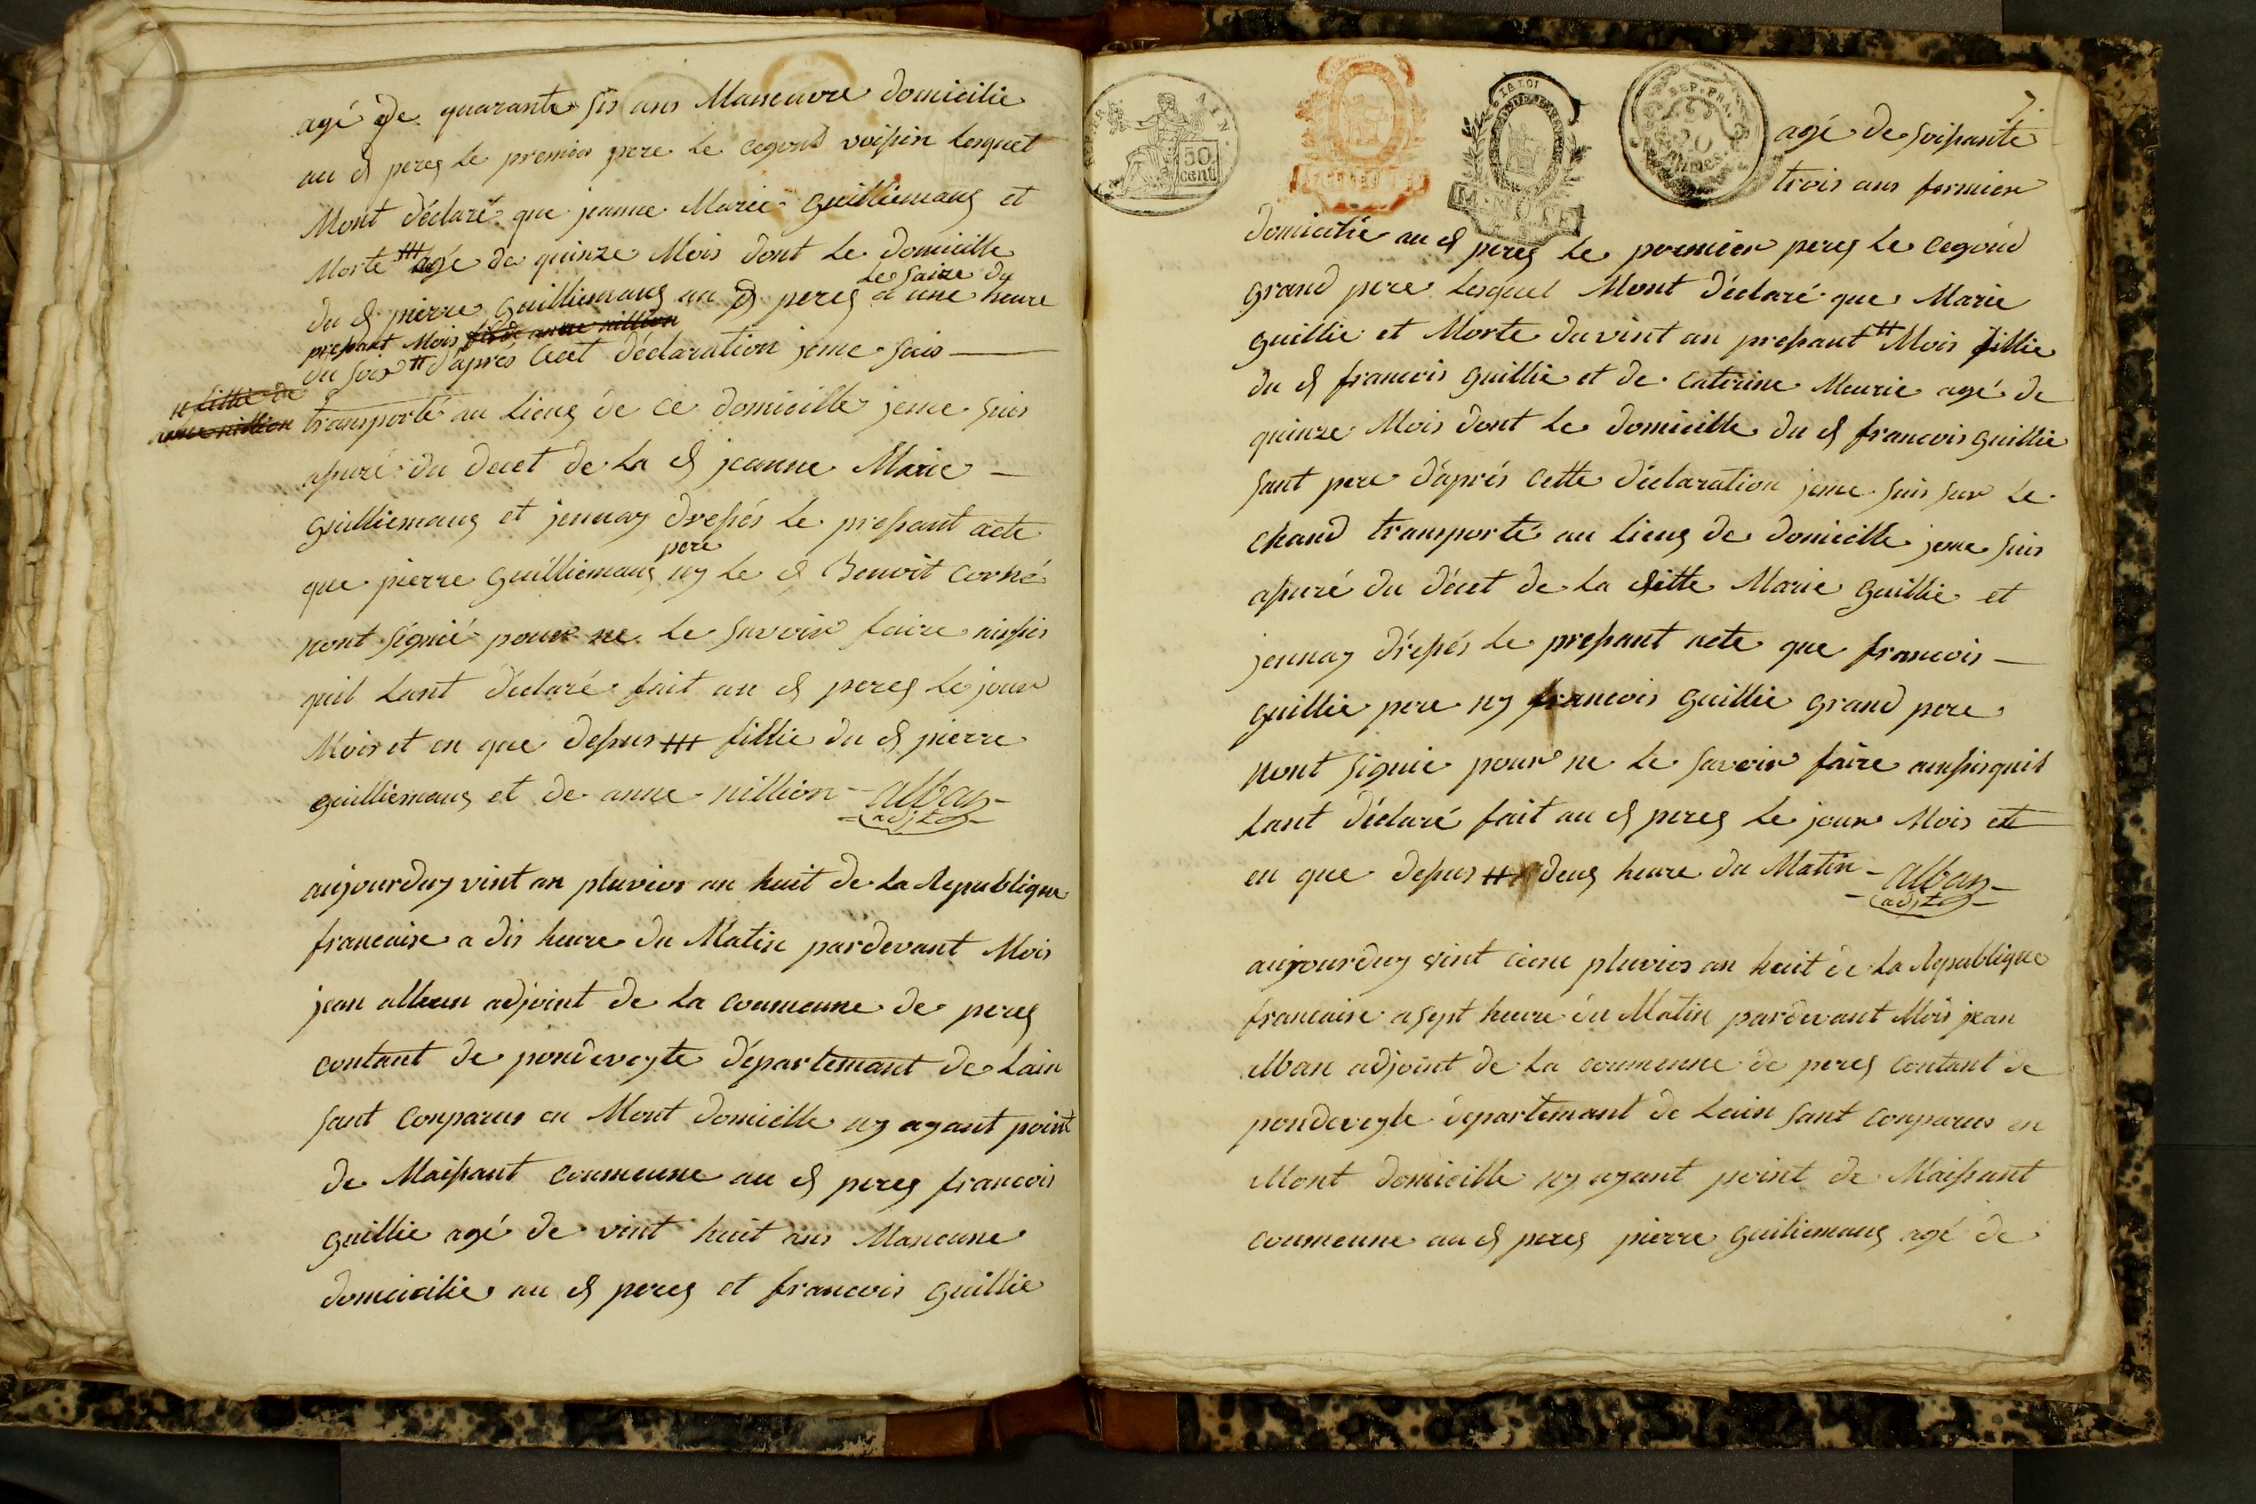 agé de quarante sis ans Maneuvre domicilie
au d perey le premier pere le cegond voisin lesquet
Mont déclaré que jeanne Marie Guilliemauy et
Morte ⧺ agé de quinze Mois dont le domicille
du d pierre Guilliemauy au d perey le saize du
presant Mois fille de anne nillion a une heure
du soir # d'après Ceet déclaration jeme suis
# fillie de
anne nillion
transporté au lieuy de ce domicille jeme suis
asuré du decet de la d jeanne Marie
Guilliemauy et jennay dresés le presant acte
que pierre Guilliemauy pere ny le d Benoit Corné
nont signié pour ne le savoir faire ainsis
quil lant déclaré fait au d perey le jour
Mois et en que desus ⧺ fillie du d pierre
guilliemauy et de anne nillion - alban
adjt
aujourduy vint an pluvios an huit de la Republique
francaise a dis heure du Matin pardevant Mois
jean alban adjoint de la coumeune de perey
contant de pondeveyle département de Lain
sant conparus en Mont domicille ny ayant point
de Maisant coumeune au d perey francois
guillie agé de vint huit ans Maneune
domicilie au d perey et francois guillie
7.
SEP. FRA.
50
cent
AIN.
agé de soisante
trois ans fermier
domicilie au d perey le pormier perey le cegond
grand pere lesquel Mont déclaré que Marie
guillie et Morte du vint an presant # Mois fillie
du d francois guillie et de Caterine Meurie agé de
quinze Mois dont le domicille du d francois guillie
sant pere d'aprés Cette déclaration jeme suis sur le
chand transporté au lieuy de domicille jeme suis
asuré du décet de la ditte Marie guillie et
jennay drésés le presant acte que francois
guillie pere ny francois guillie grand pere
nont signie pour ne le savoir faire ainsisquil
lant déclaré fait au d perey le jour Mois et
en que desus # deuy heure du Matin - alban
adjt
aujourduy vint cienc pluvios an huit de la Republique
francaise a sept heure du Matin pardevant Mois jean
alban adjoint de la coumeune de perey contant de
pondeveyle département de Lain sant conparus en
Mont domicille ny ayant point de Maisant
coumeune au d perey pierre guiliemauy agé de